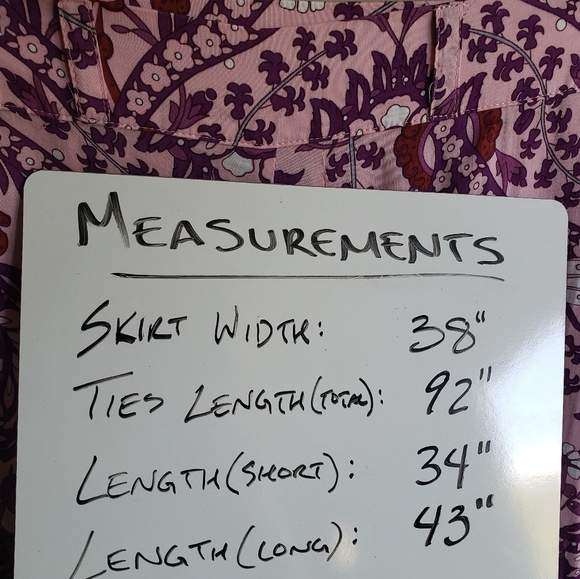 MEASUREMENTS
SKIRT WIDTH: 38"
TIES LENGTH (TOTAL): 92"
LENGTH (SHORT): 34"
LENGTH (LONG): 43"